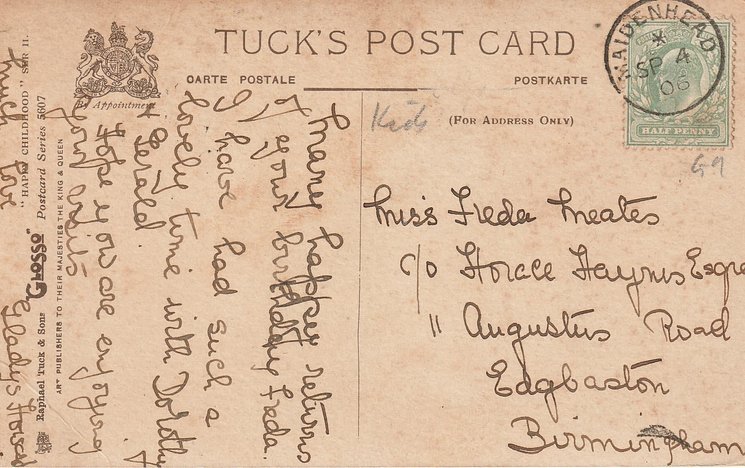 TUCK'S POST CARD
CARTE POSTALE
POSTKARTE
By Appointment
(FOR ADDRESS ONLY)
Kids
MAIDENHEAD
SP 4
06
HALF PENNY
G9
Miss Freda Meates
c/o Horace Haynes Esqre
11 Augustus Road
Edgbaston
Birmingham
many happy returns
of your birthday Freda.
I have had such a
lovely time with Dorothy
& Gerald.
Hope you are enjoying
your visit
much love
Gladys
"HAPPY CHILDHOOD" SER II.
Raphael Tuck & Sons' "GLOSSO" Postcard Series 5607
ART PUBLISHERS TO THEIR MAJESTIES THE KING & QUEEN